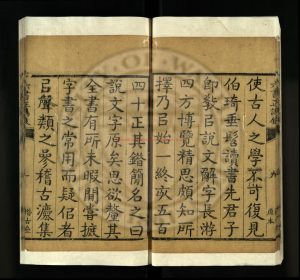 使古人之學不可復見
伯琦垂髫讀書先君子
即教㠯說文解字長游
四方博覽精思頗知所
擇乃㠯始一終亥五百
四十正其錯簡名之曰
說文字原矣思欲釐其
全書有所未暇閒嘗摭
字書之常用而疑侣者
㠯聲類之爰稽古灋集